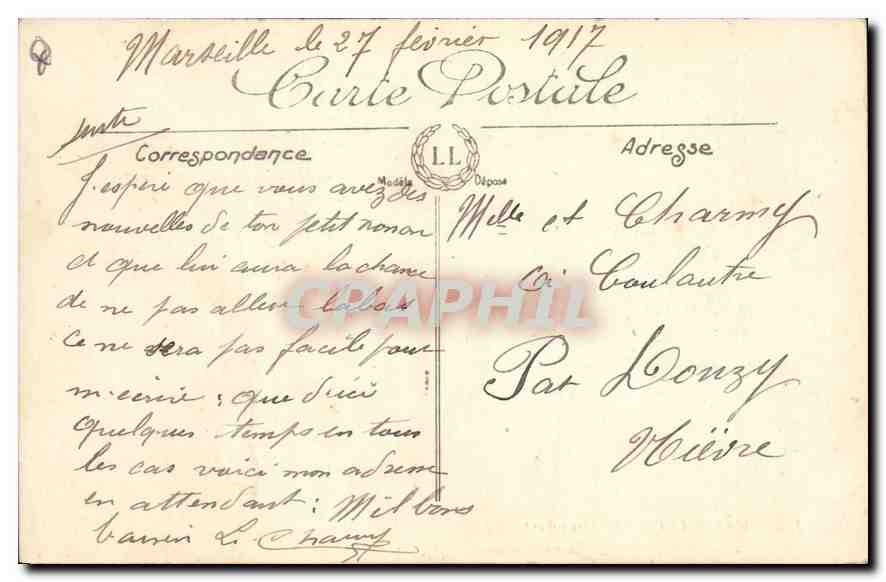 Marseille le 27 février 1917
Carte Postale
suite
Correspondance
Adresse
LL
Modèle Déposé
J'espère que vous avez des
nouvelles de ton petit
et que lui aura la chance
de ne pas aller labas
ce ne sera pas facile pour
m-ecrire : que d'ici
quelques temps en tous
les cas voici mon adresse
en attendant : Mil bons
L. Charmy
Melle et Charmy
à Coulautre
Par Donzy
Nièvre
CPAPHIL